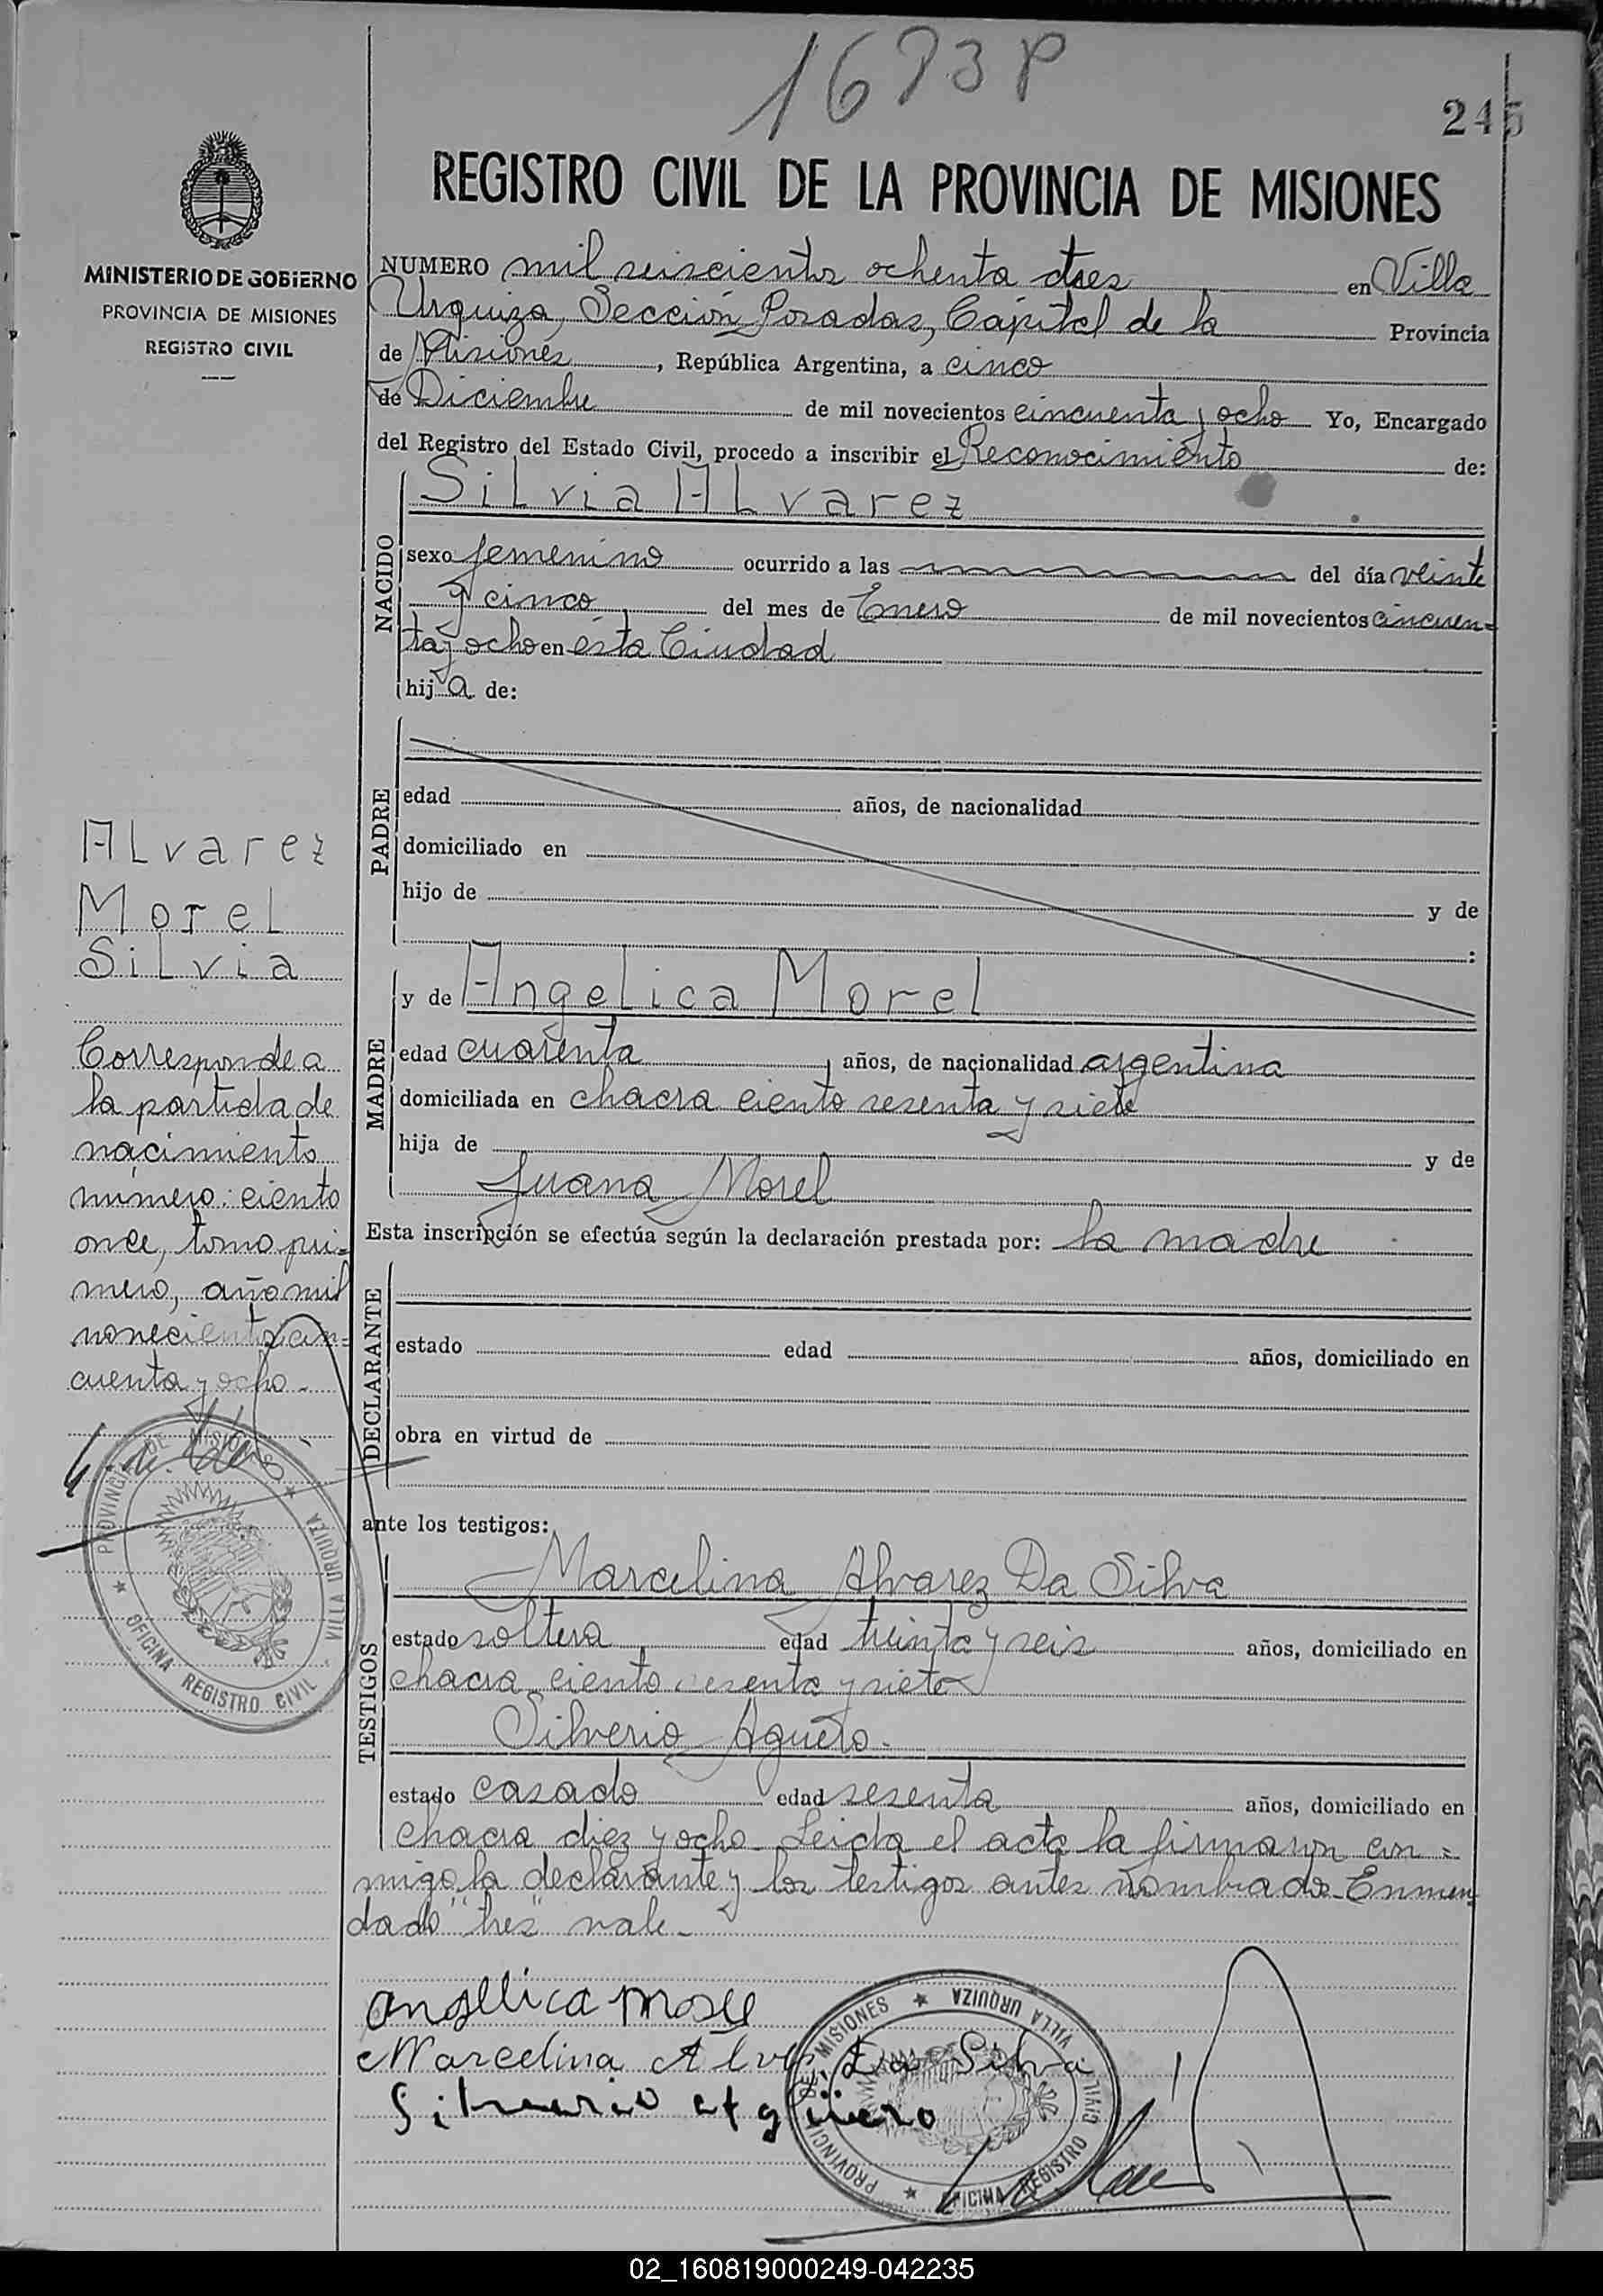 1683P
245
REGISTRO CIVIL DE LA PROVINCIA DE MISIONES
MINISTERIO DE GOBIERNO
PROVINCIA DE MISIONES
REGISTRO CIVIL
NUMERO mil seiscientos ochenta y tres en Villa
Urquiza, Sección Posadas, Capital de la Provincia
de Misiones, República Argentina, a cinco
de Diciembre de mil novecientos cincuenta y ocho Yo, Encargado
del Registro del Estado Civil, procedo a inscribir el Reconocimiento de:
NACIDO
Silvia Alvarez
sexo femenino ocurrido a las del día veinte
y cinco del mes de Enero de mil novecientos cincuen=
ta y ocho en ésta Ciudad
hija de:
PADRE
edad años, de nacionalidad
domiciliado en
hijo de y de
:
MADRE
y de Angelica Morel
edad cuarenta años, de nacionalidad argentina
domiciliada en chacra ciento sesenta y siete
hija de y de
Juana Morel
Esta inscripción se efectúa según la declaración prestada por: la madre
DECLARANTE
estado edad años, domiciliado en
obra en virtud de
ante los testigos:
TESTIGOS
Marcelina Alvarez Da Silva
estado soltera edad treinta y seis años, domiciliado en
chacra ciento sesenta y siete
Silverio Agüero.
estado casado edad sesenta años, domiciliado en
chacra diez y ocho. Leida el acta la firmaron con=
migo la declarante y los testigos antes nombrados. Enmen
dado "tres" vale.
Alvarez
Morel
Silvia
Corresponde a
la partida de
nacimiento
número: ciento
once, tomo pri=
mero, año mil
novecientos cin=
cuenta y ocho.
PROVINCIA DE MISIONES ★ VILLA URQUIZA
★ OFICINA REGISTRO CIVIL
angelica morel
Marcelina Alvez Da Silva
Silverio Agüero
PROVINCIA DE MISIONES ★ VILLA URQUIZA
★ OFICINA REGISTRO CIVIL
02_160819000249-042235